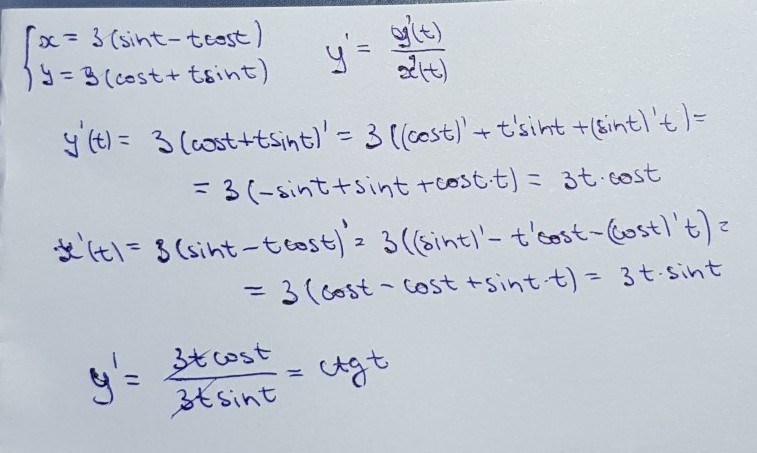 {x = 3(sint - tcost)
y = 3(cost + tsint)
y' = y'(t)/x'(t)
y'(t) = 3(cost+tsint)' = 3((cost)' + t'sint + (sint)'t) =
= 3(-sint + sint + cost·t) = 3t·cost
x'(t) = 3(sint - tcost)' = 3((sint)' - t'cost - (cost)'t) =
= 3(cost - cost + sint·t) = 3t·sint
y' = 3tcost/3tsint = ctgt